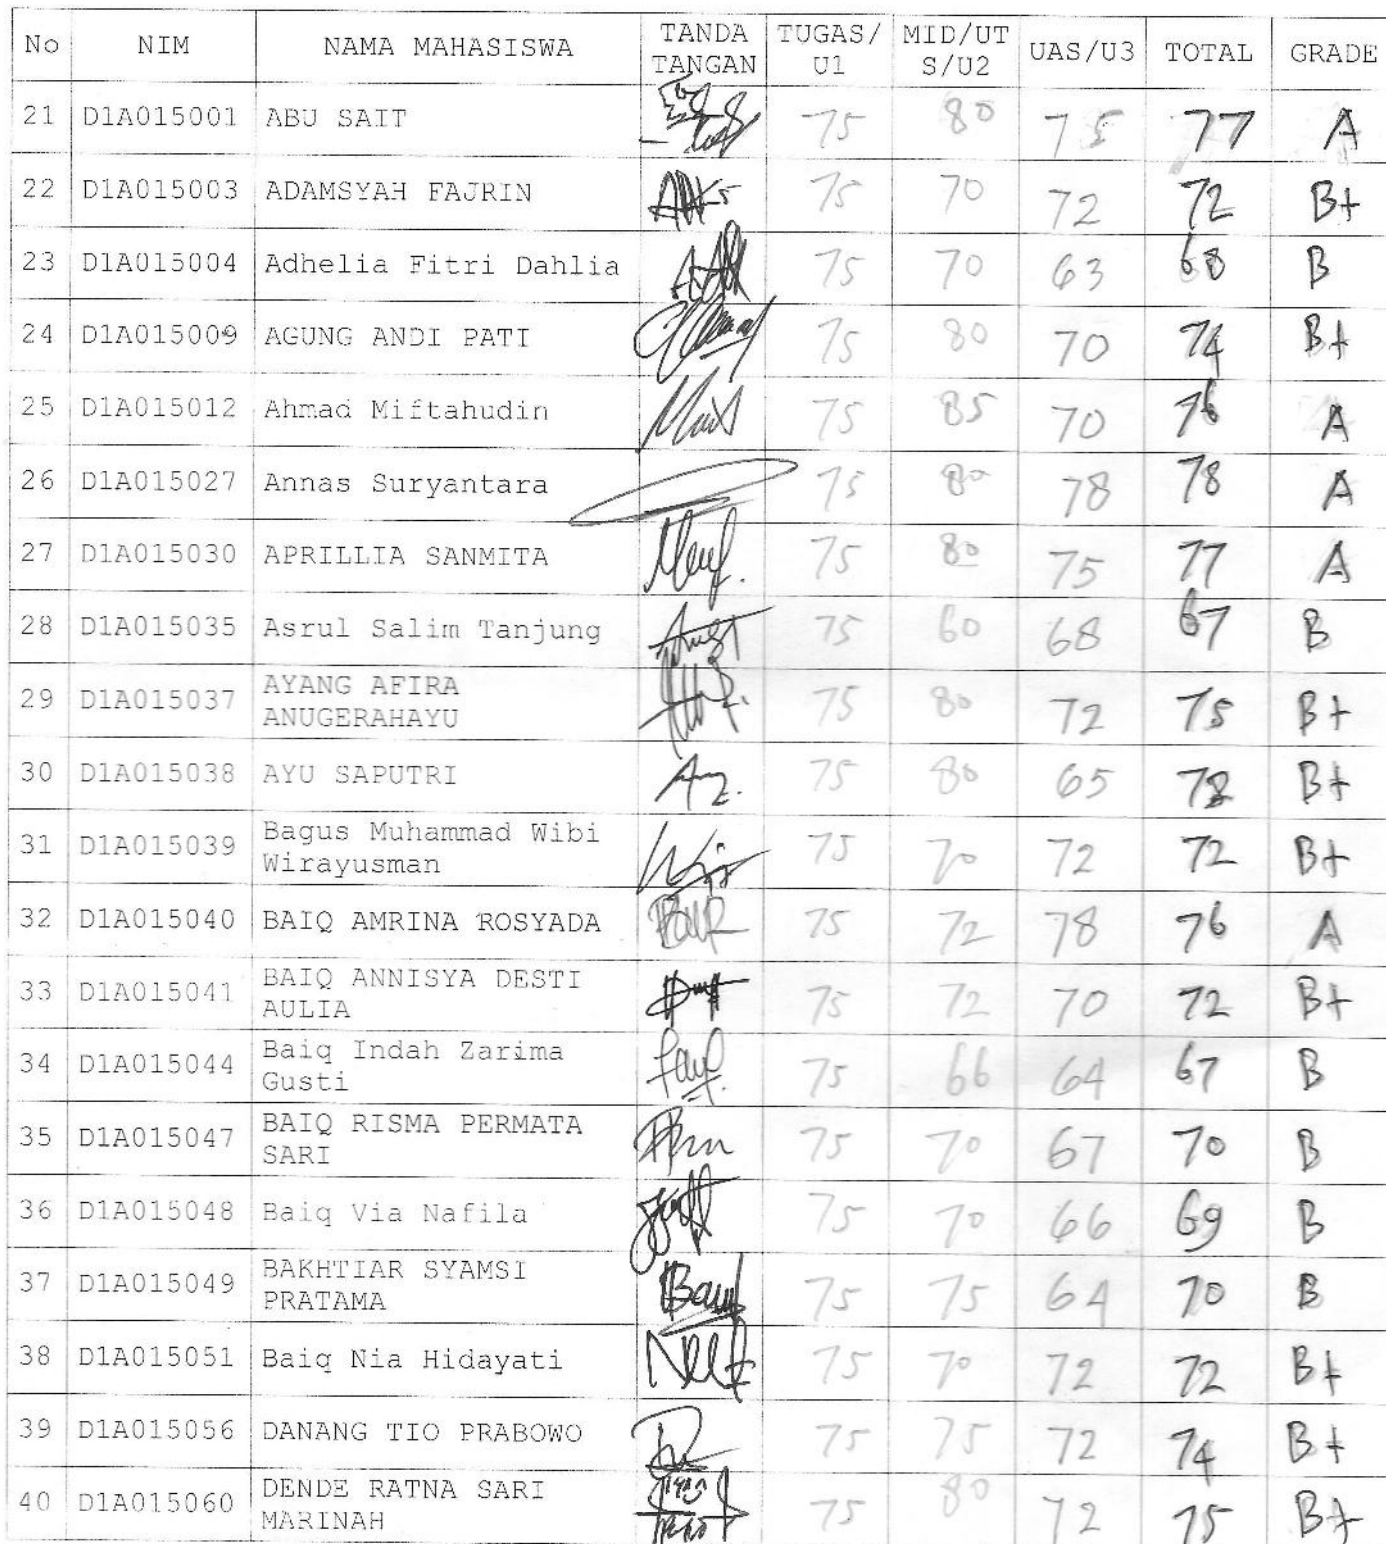 No NIM NAMA MAHASISWA TANDA TANGAN TUGAS/U1 MID/UTS/U2 UAS/U3 TOTAL GRADE
21 D1A015001 ABU SAIT 75 80 75 77 A
22 D1A015003 ADAMSYAH FAJRIN 75 70 72 72 B+
23 D1A015004 Adhelia Fitri Dahlia 75 70 63 68 B
24 D1A015009 AGUNG ANDI PATI 75 80 70 74 B+
25 D1A015012 Ahmad Miftahudin 75 85 70 76 A
26 D1A015027 Annas Suryantara 75 80 78 78 A
27 D1A015030 APRILLIA SANMITA 75 80 75 77 A
28 D1A015035 Asrul Salim Tanjung 75 60 68 67 B
29 D1A015037 AYANG AFIRA
ANUGERAHAYU 75 80 72 75 B+
30 D1A015038 AYU SAPUTRI 75 80 65 B+
31 D1A015039 Bagus Muhammad Wibi
Wirayusman 75 70 72 72 B+
32 D1A015040 BAIQ AMRINA ROSYADA 75 72 78 76 A
33 D1A015041 BAIQ ANNISYA DESTI
AULIA 75 72 70 72 B+
34 D1A015044 Baiq Indah Zarima
Gusti 75 66 64 67 B
35 D1A015047 BAIQ RISMA PERMATA
SARI 75 70 67 70 B
36 D1A015048 Baiq Via Nafila 75 70 66 69 B
37 D1A015049 BAKHTIAR SYAMSI
PRATAMA 75 75 64 70 B
38 D1A015051 Baiq Nia Hidayati 75 70 72 72 B+
39 D1A015056 DANANG TIO PRABOWO 75 75 72 74 B+
40 D1A015060 DENDE RATNA SARI
MARINAH 75 80 72 75 B+